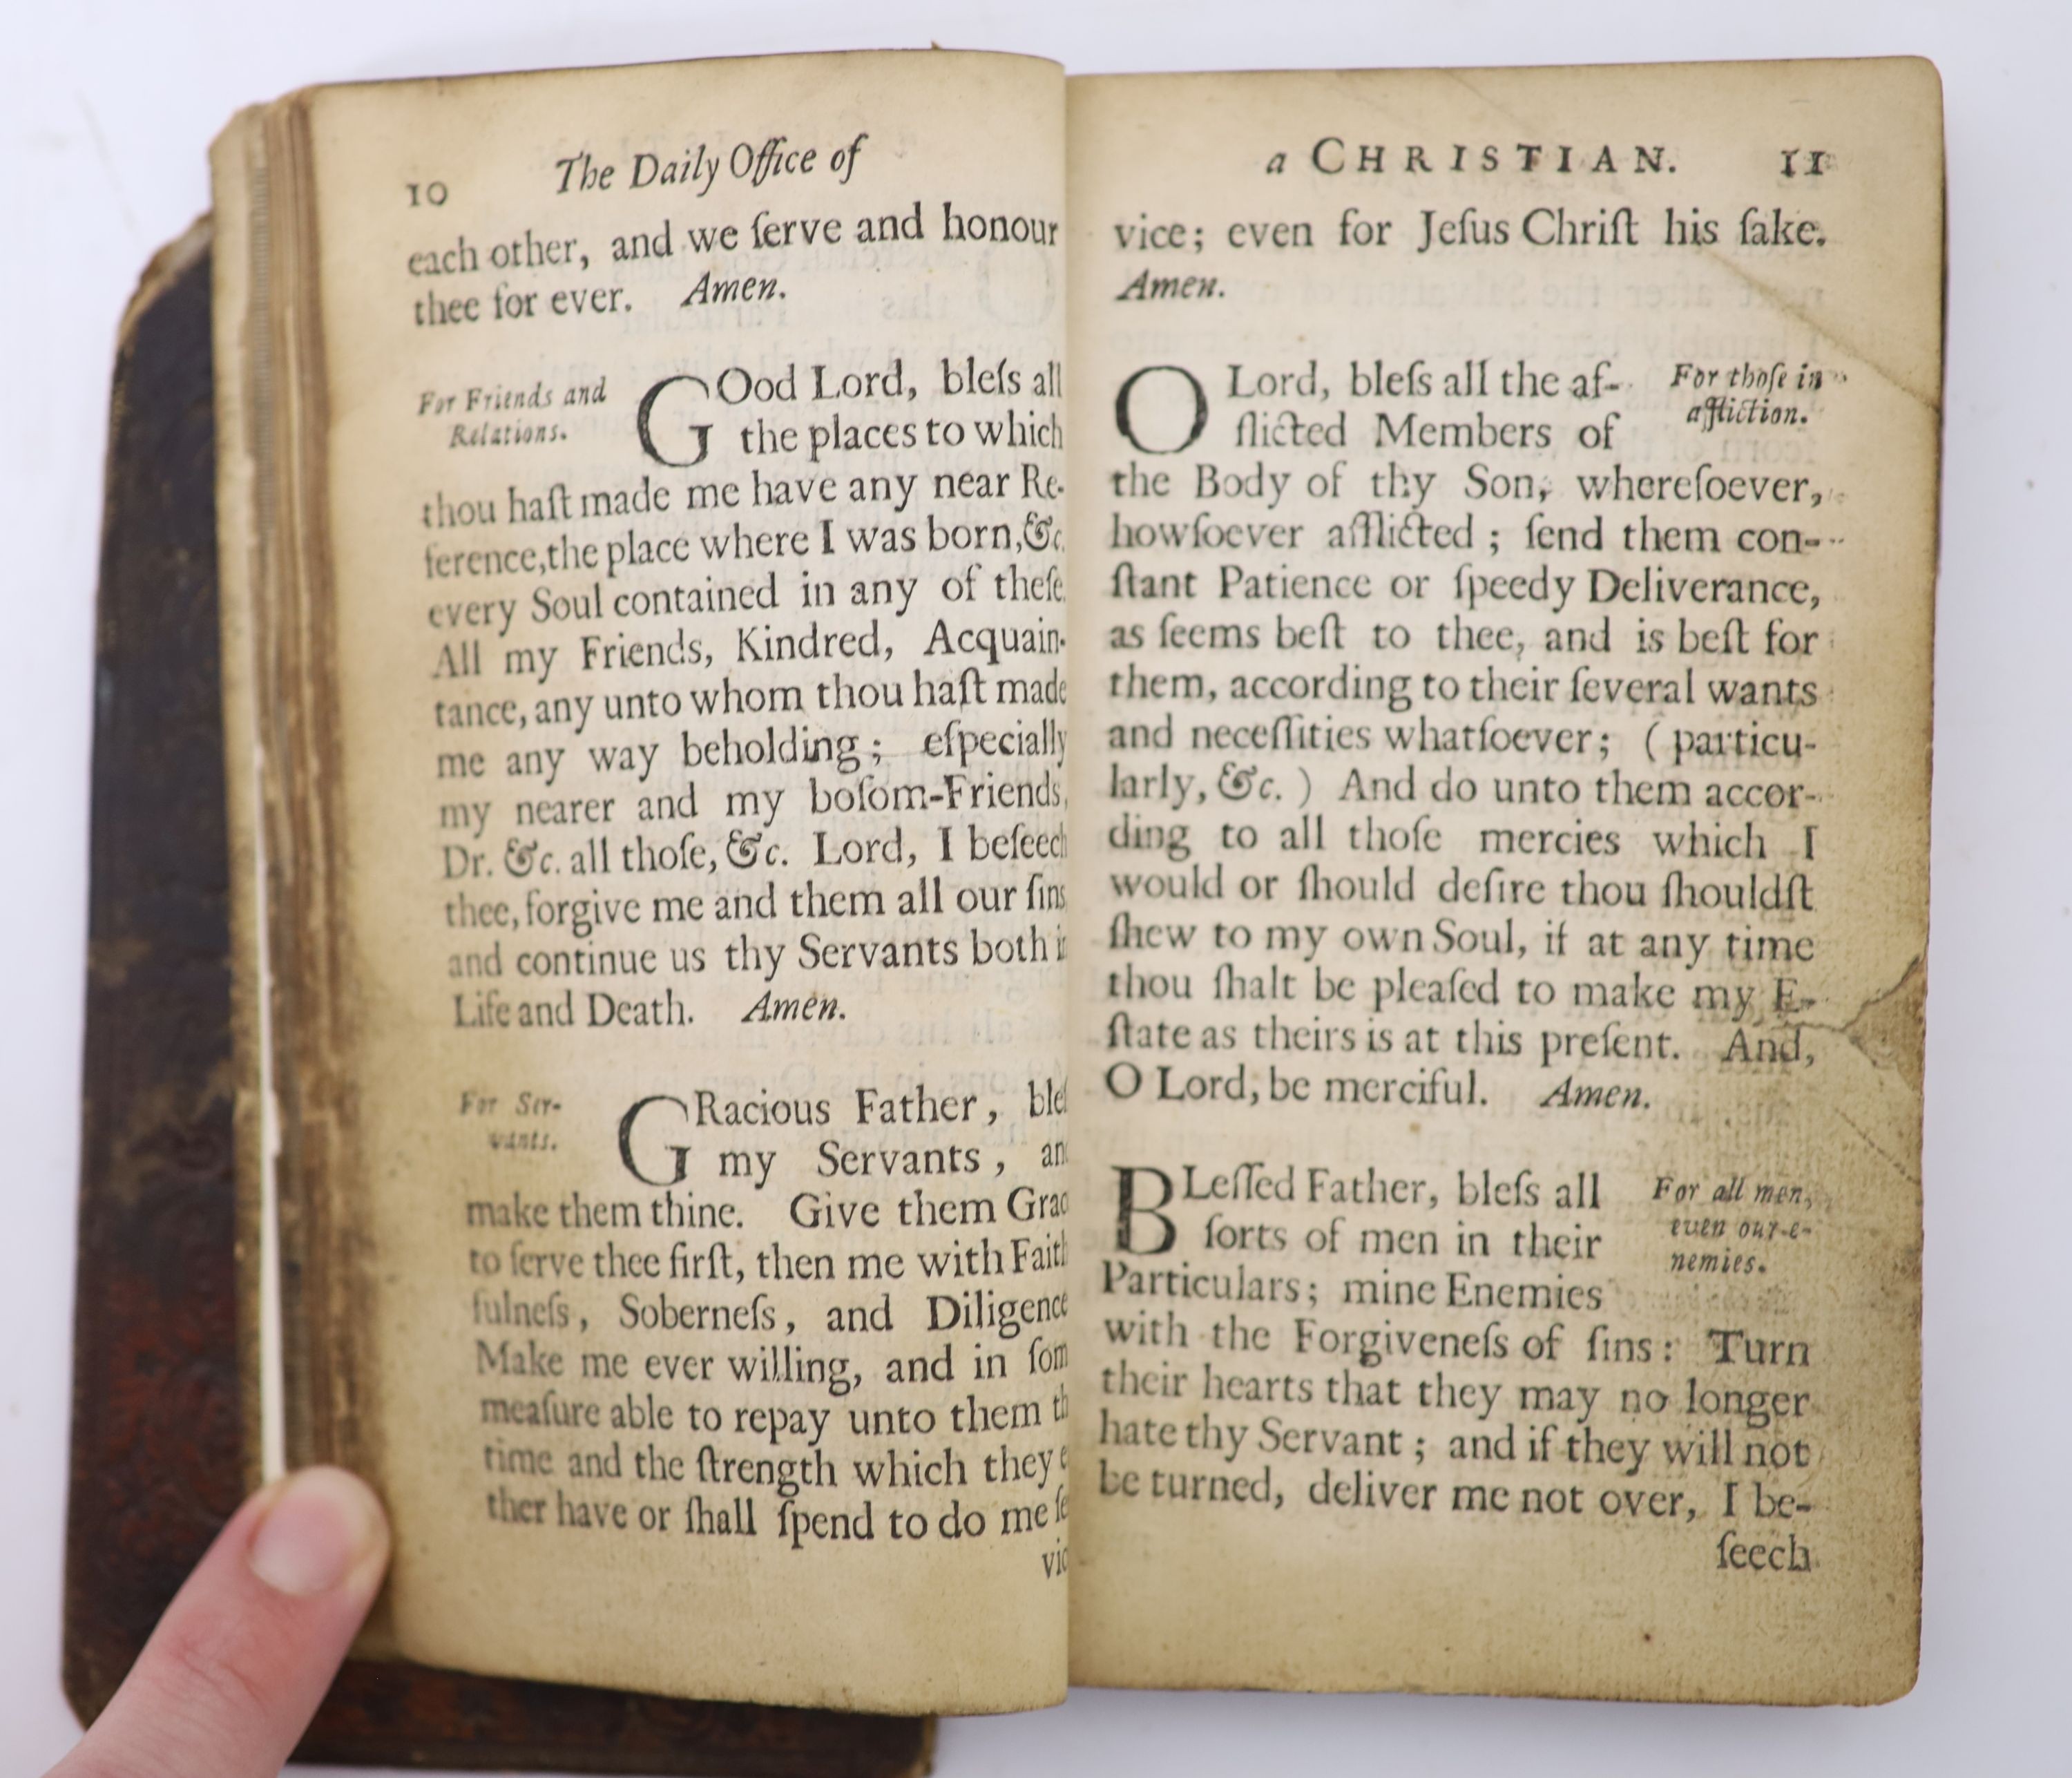 10 The Daily Office of
each other, and we ſerve and honour
thee for ever. Amen.
For Friends and
Relations.
GOod Lord, bleſs all
the places to which
thou haſt made me have any near Re-
ference, the place where I was born, &c.
every Soul contained in any of theſe.
All my Friends, Kindred, Acquain-
tance, any unto whom thou haſt made
me any way beholding; eſpecially
my nearer and my boſom-Friends,
Dr. &c. all thoſe, &c. Lord, I beſeech
thee, forgive me and them all our ſins
and continue us thy Servants both
Life and Death. Amen.
For Ser-
vants.
GRacious Father,
my Servants,
make them thine. Give them
to ſerve thee firſt, then me with
fulneſs, Soberneſs, and Diligence
Make me ever willing, and in
meaſure able to repay unto them
time and the ſtrength which they
ther have or ſhall ſpend to do me
a CHRISTIAN. 11
vice; even for Jeſus Chriſt his ſake.
Amen.
O Lord, bleſs all the af-
flicted Members of
For thoſe in
affliction.
the Body of thy Son, whereſoever,
howſoever afflicted; ſend them con-
ſtant Patience or ſpeedy Deliverance,
as ſeems beſt to thee, and is beſt for
them, according to their ſeveral wants
and neceſſities whatſoever; ( particu-
larly, &c. ) And do unto them accor-
ding to all thoſe mercies which I
would or ſhould deſire thou ſhouldſt
ſhew to my own Soul, if at any time
thou ſhalt be pleaſed to make my E-
ſtate as theirs is at this preſent. And,
O Lord, be merciful. Amen.
BLeſſed Father, bleſs all
ſorts of men in their
Particulars; mine Enemies
For all men,
even our e-
nemies.
with the Forgiveneſs of ſins: Turn
their hearts that they may no longer
hate thy Servant; and if they will not
be turned, deliver me not over, I be-
ſeech